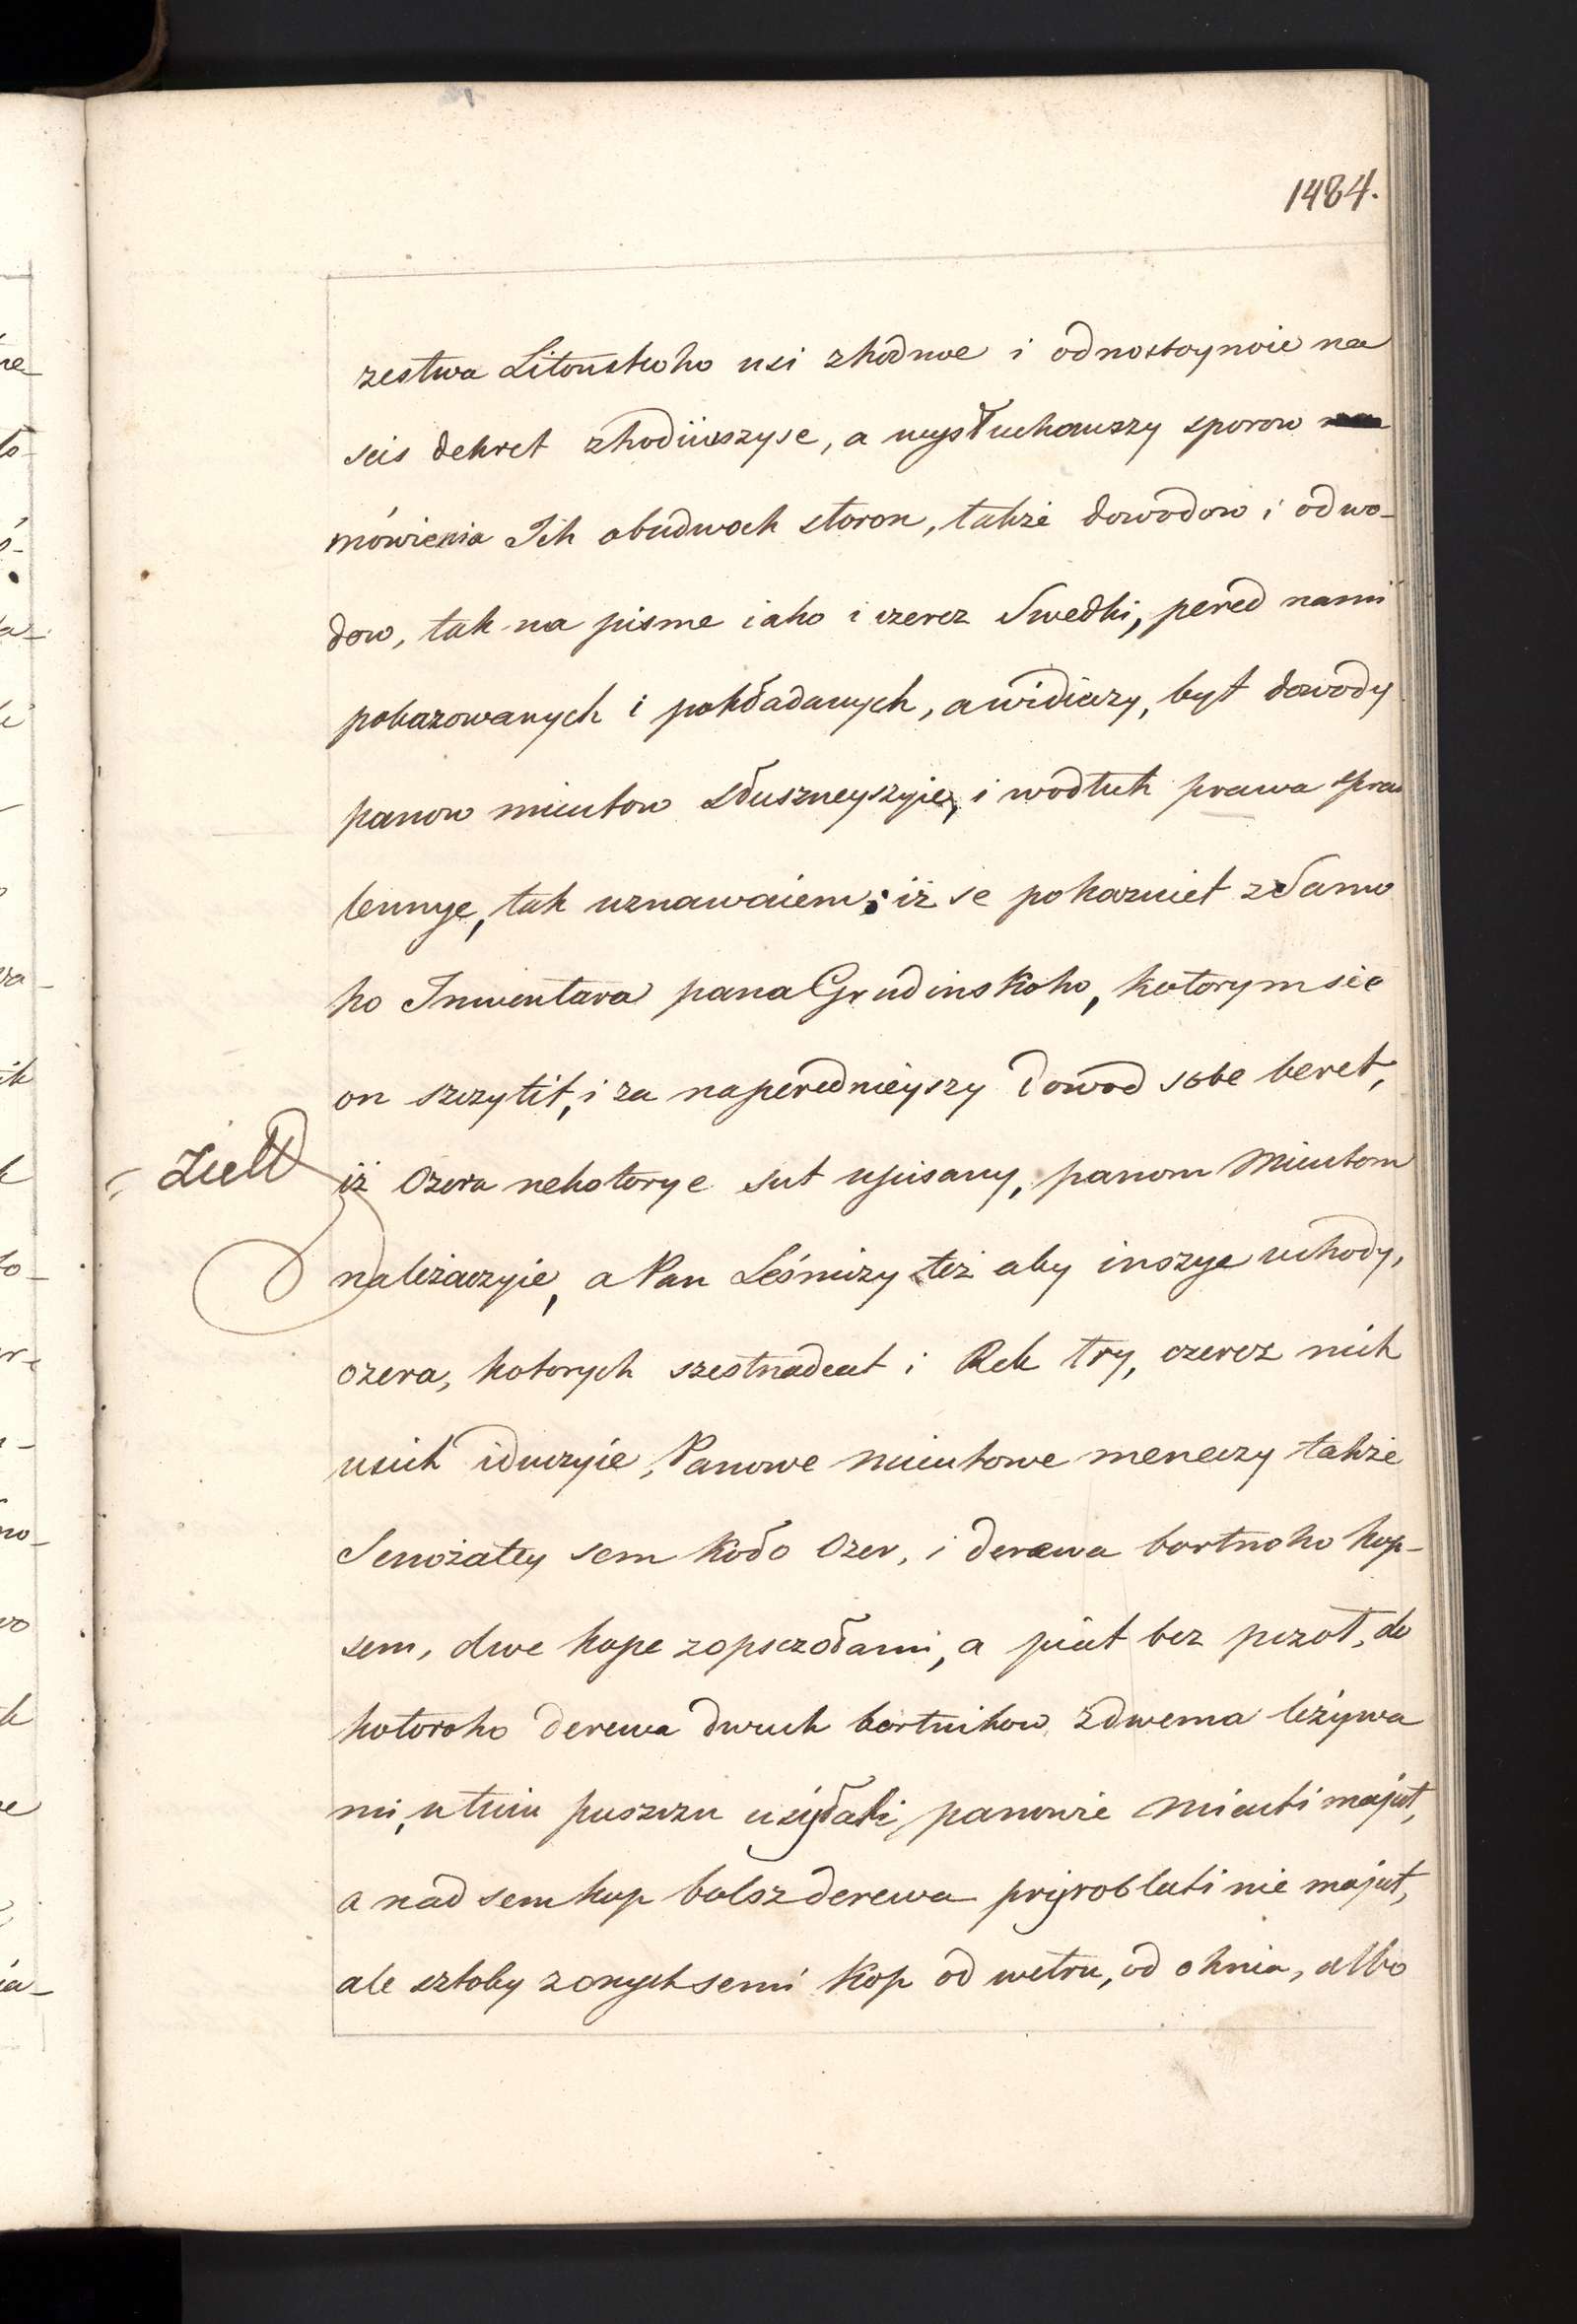 1484.
zestwa Litouskoho usi zhodne i odnostoynie na
seis dekret zhodiwszyse, a wysłuchauszy sporow
mówienia Ich obudwoch storon, także dowodow i odwo-
dow, tak na pisme iako i czerez Swedki, pered nami
pokazowanych i pokładanych, a widiaczy, byt dowody
panow mieutow słuszneyszyie, i wodłuh prawa spraw
lennye, tak uznawaiem; iż se pokazuiet z Samo
ho Inwentara pana Grudinskoho, kotorym sie
on szczytit, i za naperednieyszy dowod sobe beret,
iż Ozera nekotorye sut upisany, panom Mieutom
należaczyie, a Pan Leśniczy też aby inszye uchody,
ozera, kotorych szestnadcat i Rek try, czerez nich
usich iduczyie, Panowe mieutowe meneczy także
Senożatey sem koło Ozer, i derewa bortnoho kop-
sem, dwe kope z opsczołami, a piat bez pczoł, do
kotoroho derewa dwuch bortnikow z dwema leżywa
mi, u tuiu puszczu usyłati panowie Mieuti majut,
a nad sem kop bolsz derewa pryroblati nie majut,
ale sztoby z onych semi kop od wetru, od ohnia, albo